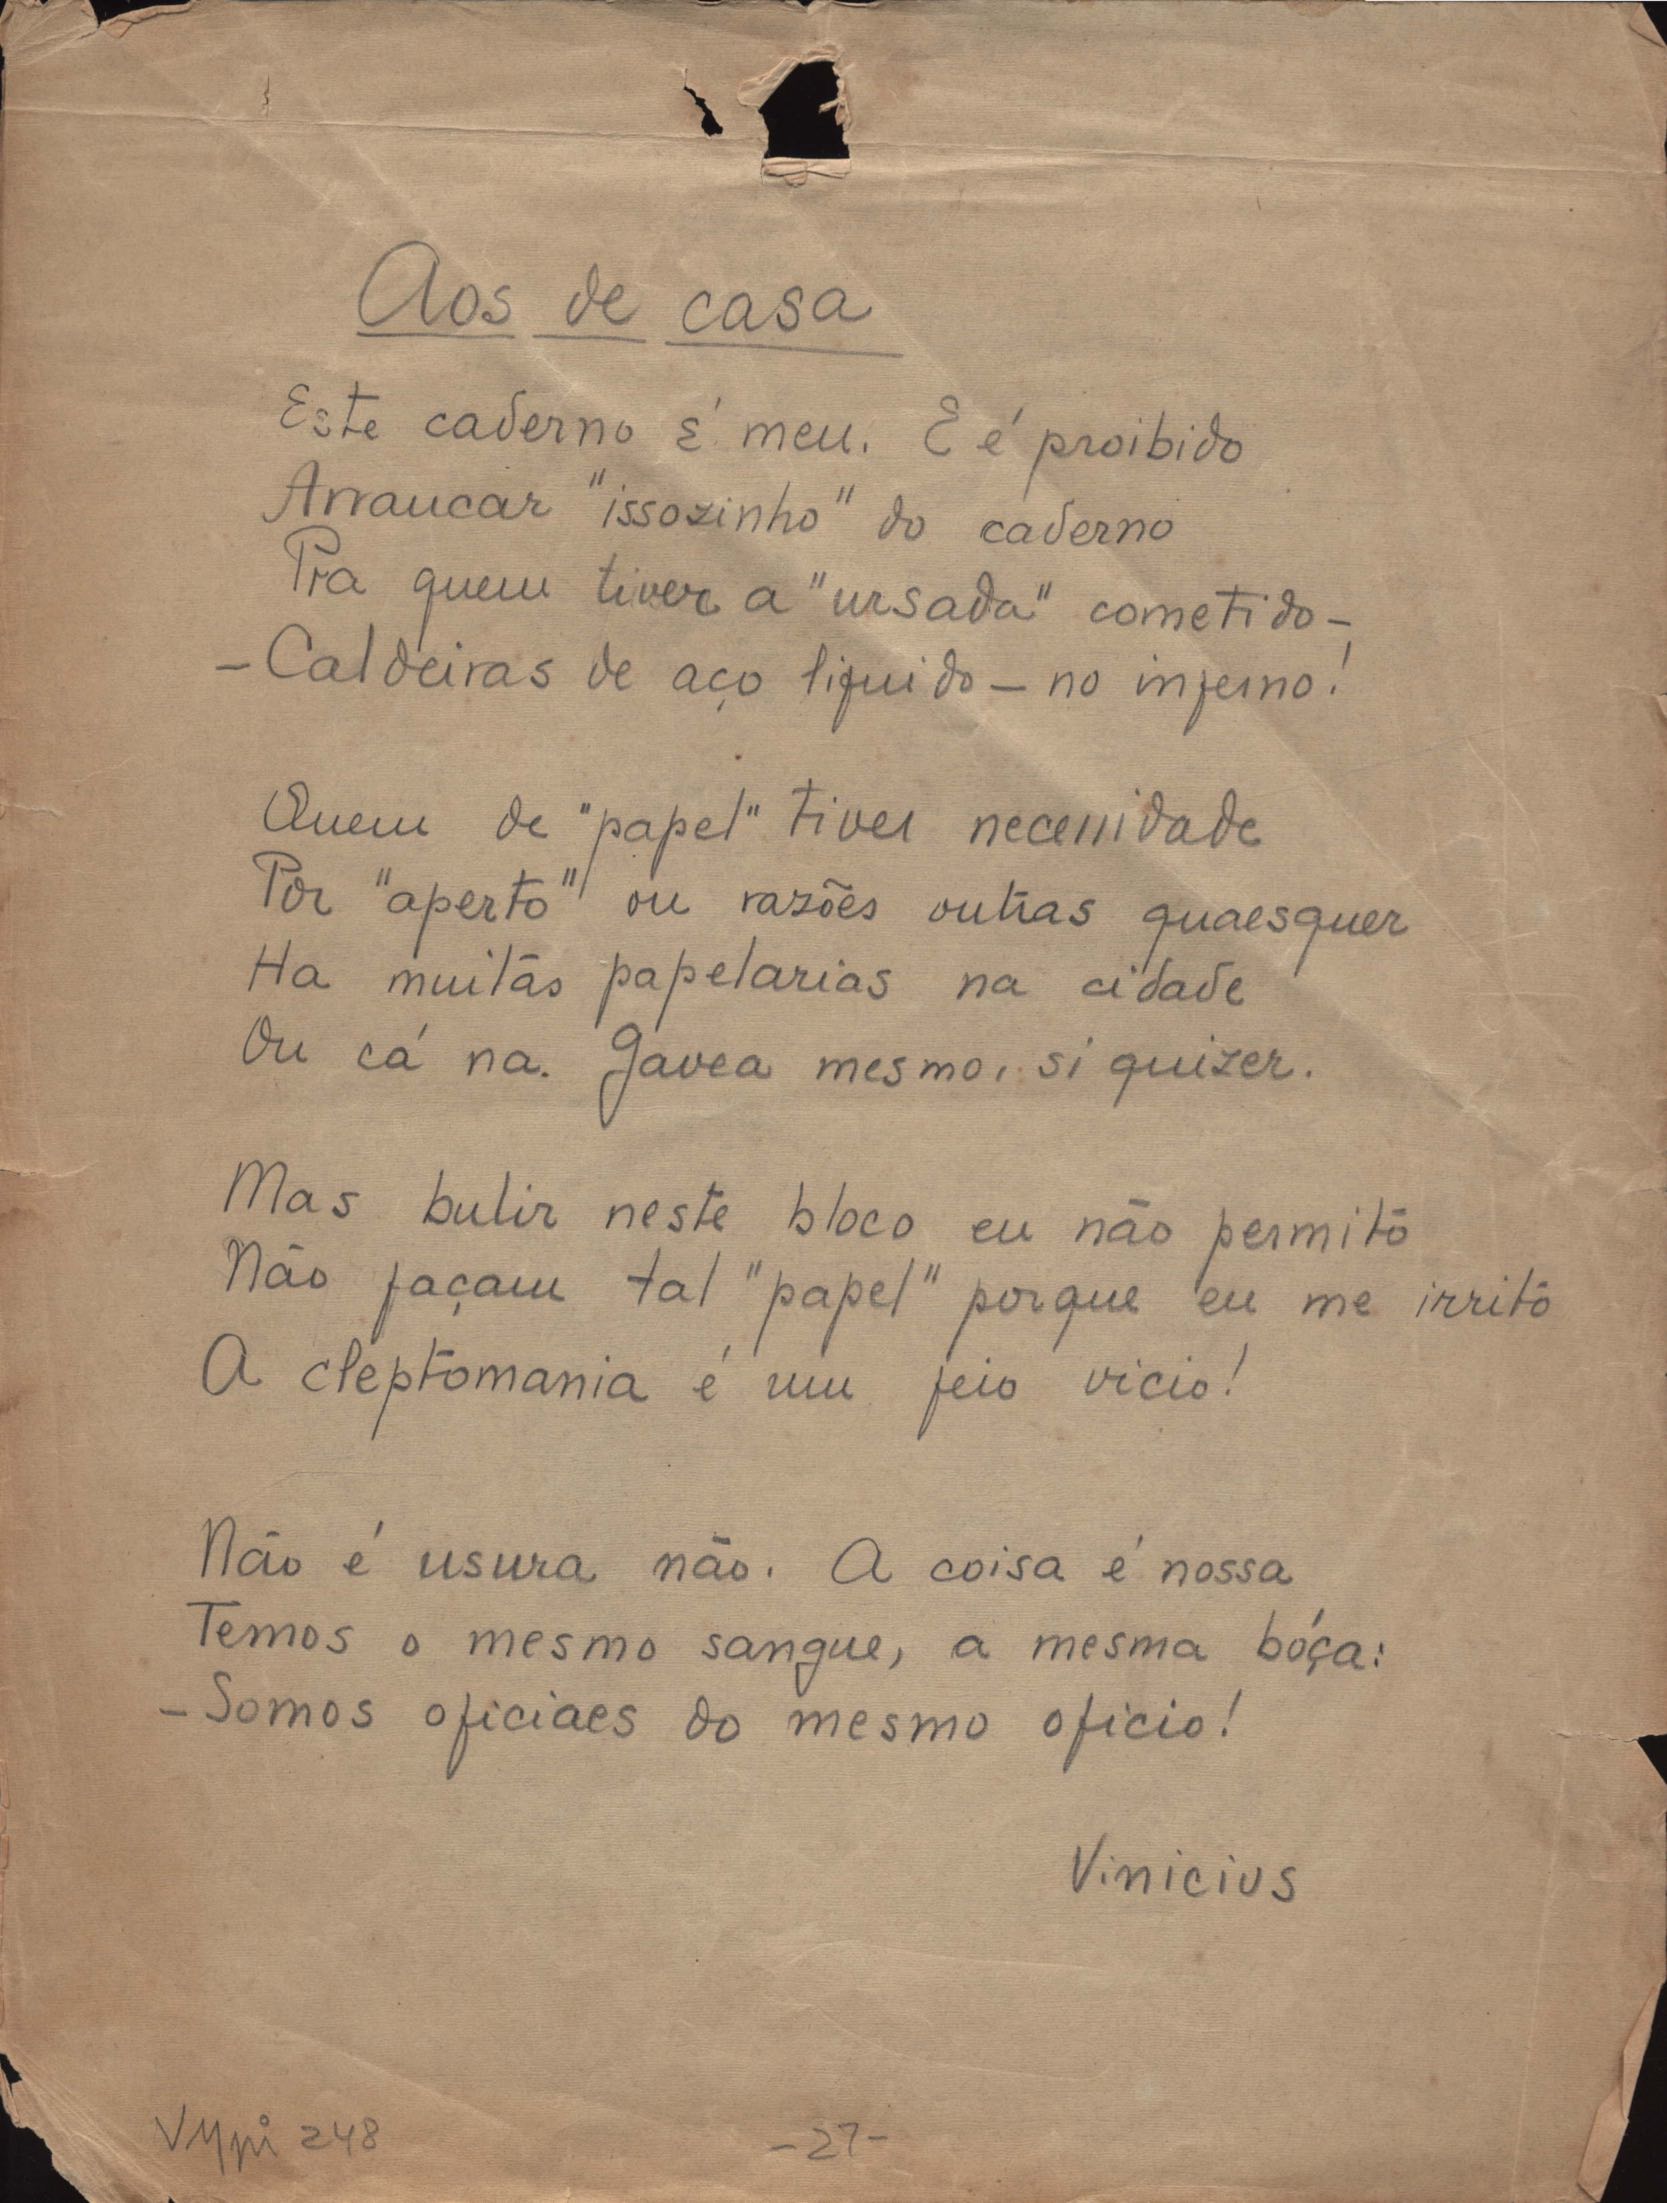 Aos de casa
Este caderno é meu. E é proibido
Arrancar "issozinho" do caderno
Pra quem tiver a "ursada" cometido—
— Caldeiras de aço liquido — no inferno!
Quem de "papel" tiver necessidade
Por "aperto" ou razões outras quaesquer
Ha muitas papelarias na cidade
Ou cá na. Gavea mesmo, si quizer.
Mas bulir neste bloco eu não permito
Não façam tal "papel" porque eu me irrito
A cleptomania é um feio vicio!
Não é usura não. A coisa é nossa
Temos o mesmo sangue, a mesma bóça:
— Somos oficiaes do mesmo oficio!
Vinicius
VMpi 248
-27-